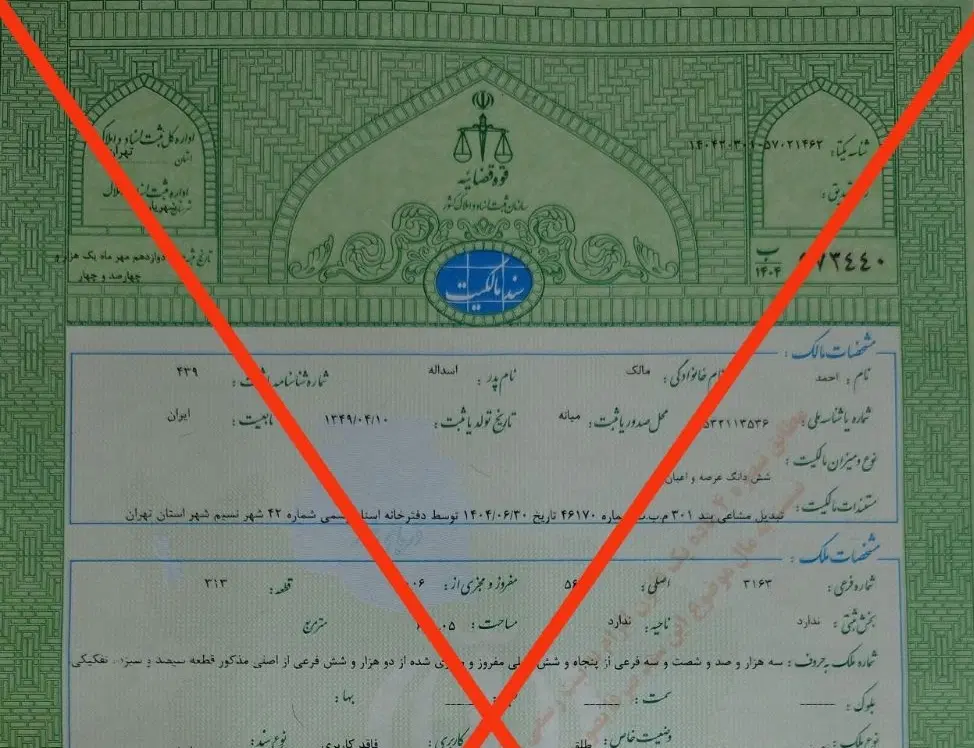 اداره کل ثبت اسناد و املاک
استان تهران
قوه قضائیه
سازمان ثبت اسناد و املاک کشور
شناسه یکتا:
اداره ثبت اسناد و املاک
ب
۱۴۰۴
دوازدهم مهر ماه یک هزار و
چهارصد و چهار
سند مالکیت
مشخصات مالک:
نام: احمد نام خانوادگی: مالک نام پدر: اسداله شماره شناسنامه / ثبت: ۴۳۹
شماره یا شناسه ملی: محل صدور یا ثبت: میانه تاریخ تولد یا ثبت: ۱۳۴۹/۰۴/۱۰ تابعیت: ایران
نوع و میزان مالکیت: شش دانگ عرصه و اعیان
مستندات مالکیت: تبدیل مشاعی بند ۳۰۱ م.ب.ث شماره ۴۶۱۷۰ تاریخ ۱۴۰۴/۰۶/۳۰ توسط دفترخانه اسناد رسمی شماره ۴۲ شهر نسیم شهر استان تهران
مشخصات ملک:
شماره فرعی: ۳۱۶۳ اصلی: مفروز و مجزی از: قطعه: ۳۱۳
بخش ثبتی: ندارد ناحیه: ندارد مساحت: مترمربع
شماره ملک به حروف: سه هزار و صد و شصت و سه فرعی از پنجاه و شش اصلی مفروز و مجزی شده از دو هزار و شش فرعی از اصلی مذکور قطعه سیصد و سیزده تفکیکی
بلوک: سمت: بها:
نوع ملک: طلق وضعیت خاص: فاقد کاربری کاربری: نوع سند: